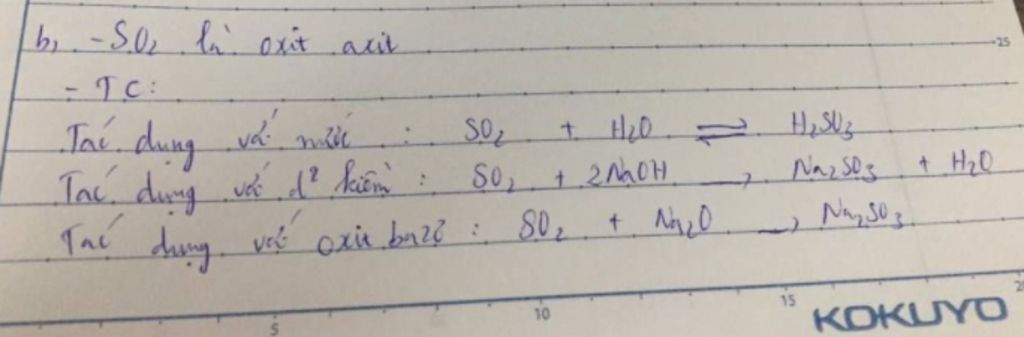 b, - SO2 là oxit axit
- TC:
Tác dụng với nước : SO2 + H2O ⇌ H2SO3
Tác dụng với d² kiềm : SO2 + 2NaOH → Na2SO3 + H2O
Tác dụng với oxit bazơ : SO2 + Na2O → Na2SO3
25
5 10 15 20
KOKUYO